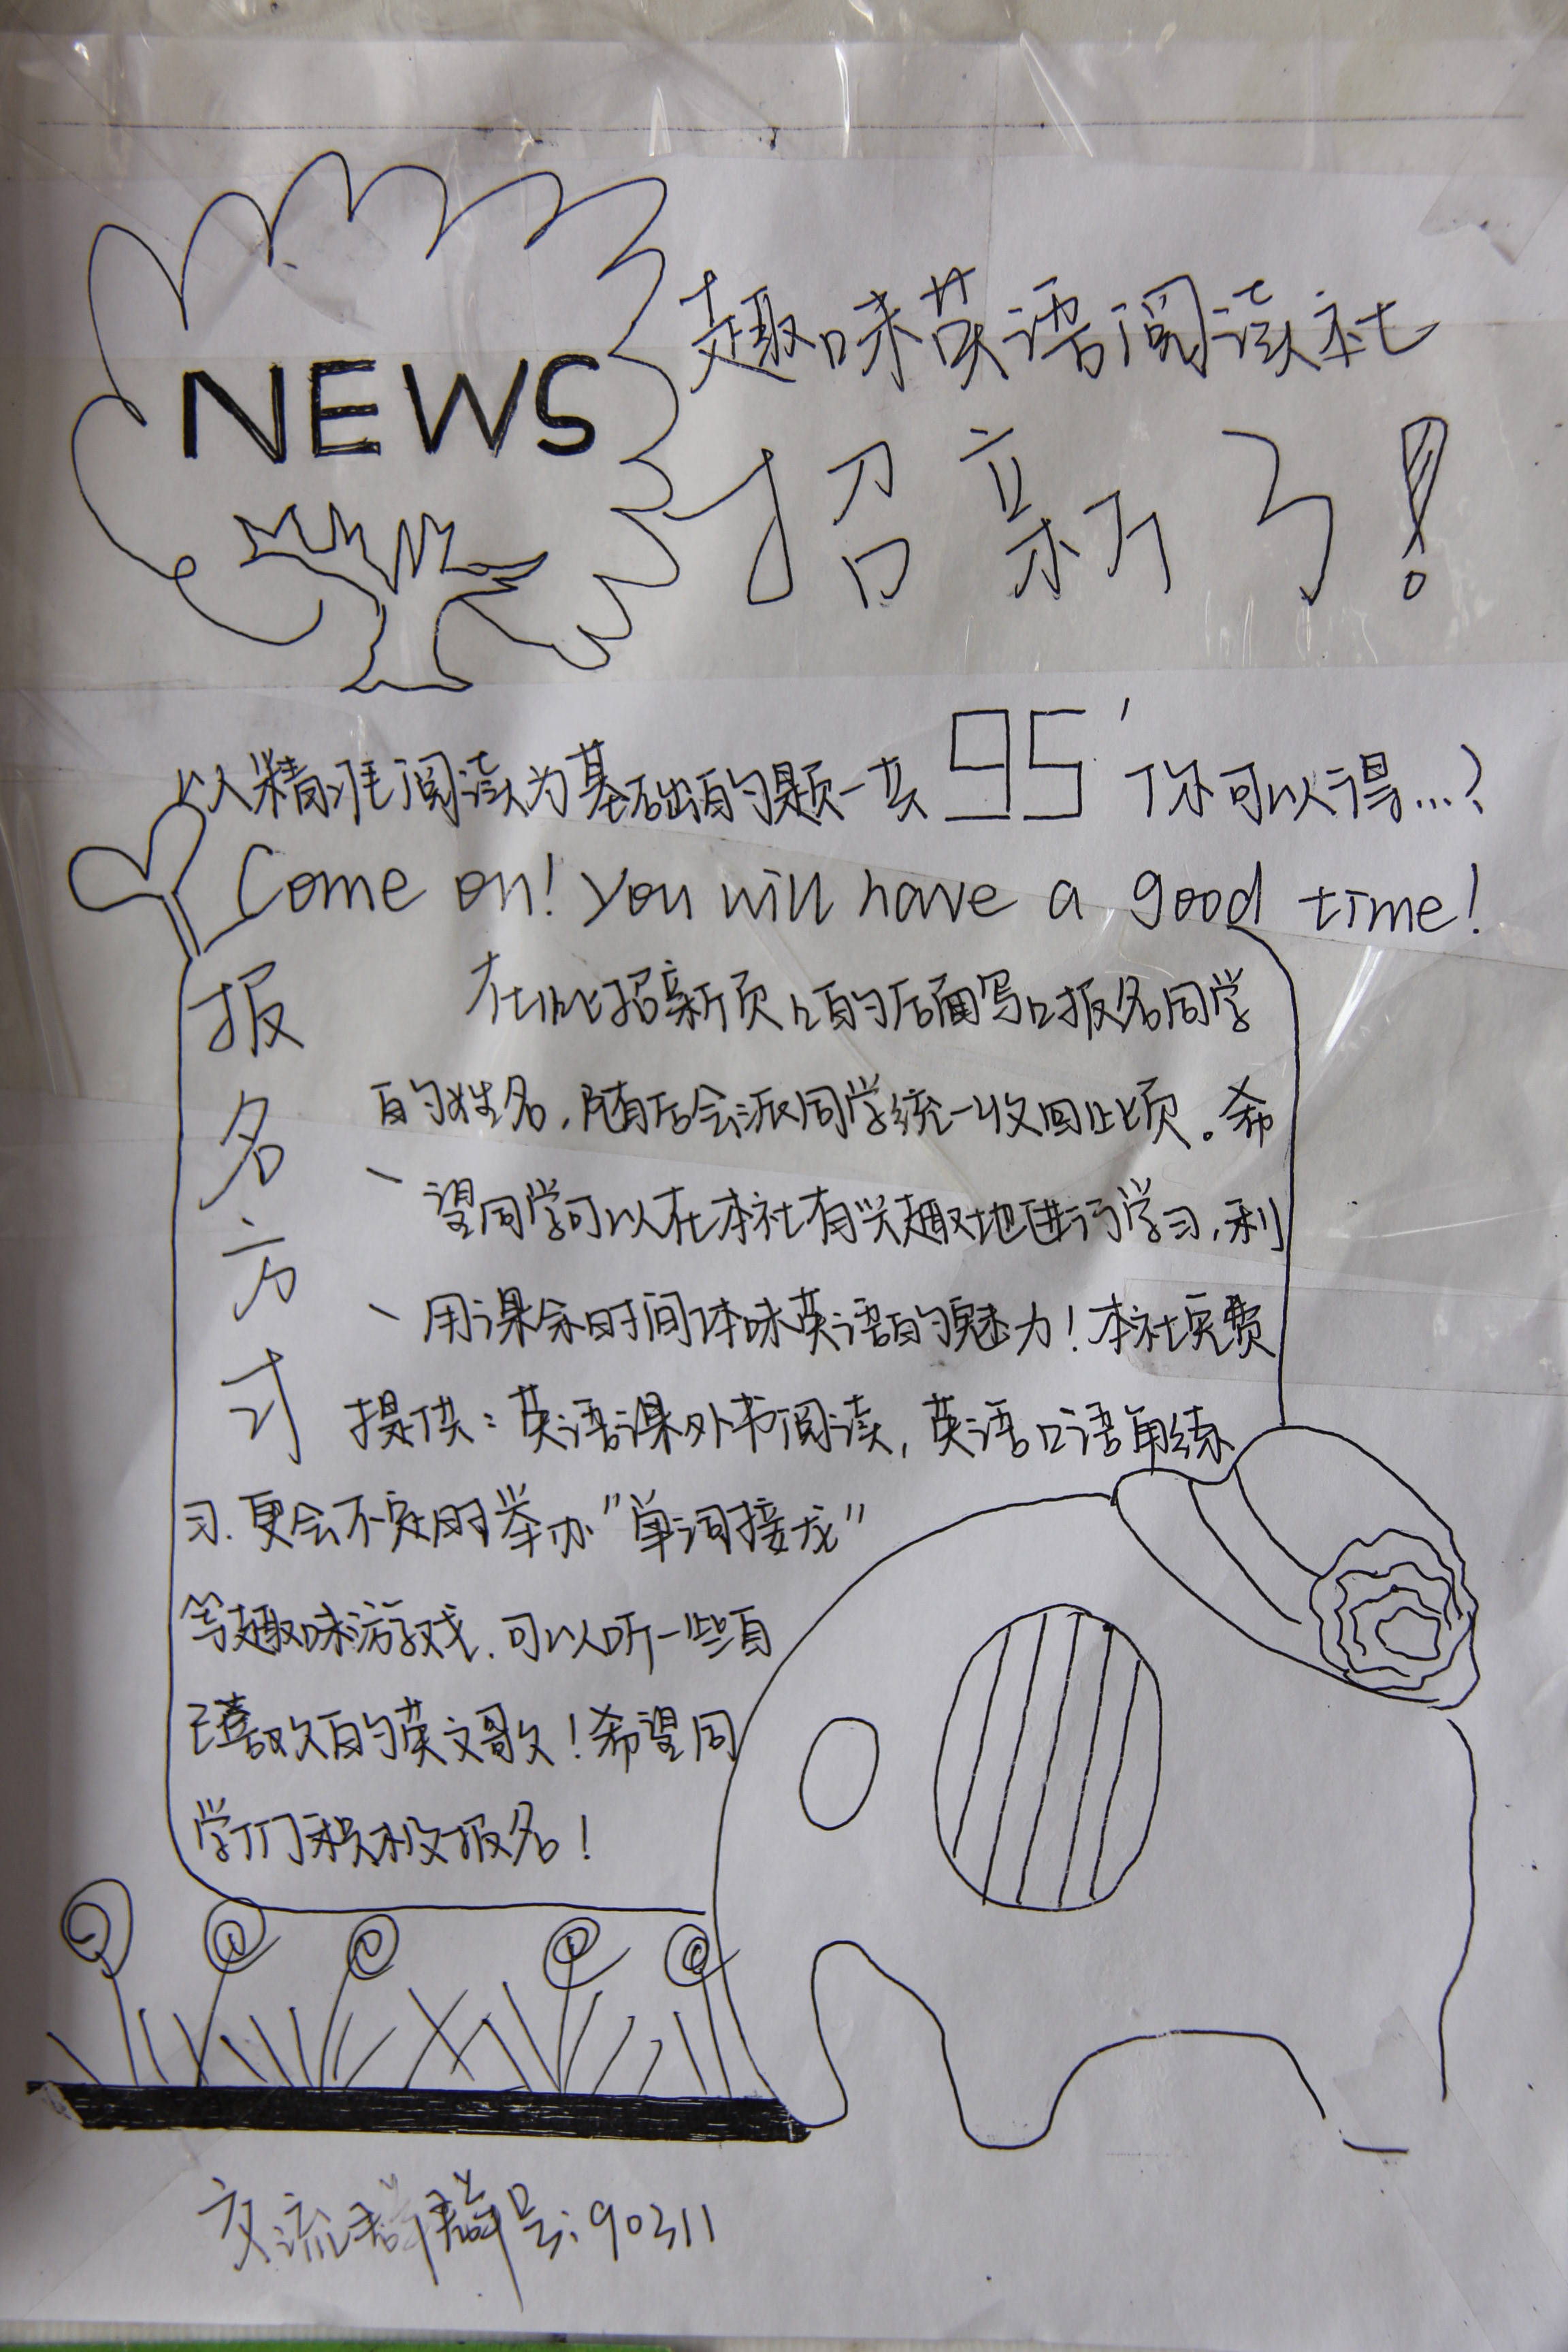 NEWS
趣味英语阅读社
招新了!
以精准阅读为基础的题一共95'你可以得...?
Come on! You will have a good time!
报名方式
在此招新页上的后面写上报名同学
的姓名,随后会派同学统一收回此页。希
望同学可以在本社有兴趣地进行学习,利
用课余时间体味英语的魅力!本社免费
提供:英语课外书阅读,英语口语角练
习.更会不定时举办"单词接龙"
等趣味游戏.可以听一些自
己喜欢的英文歌!希望同
学们积极报名!
交流群群号:90311